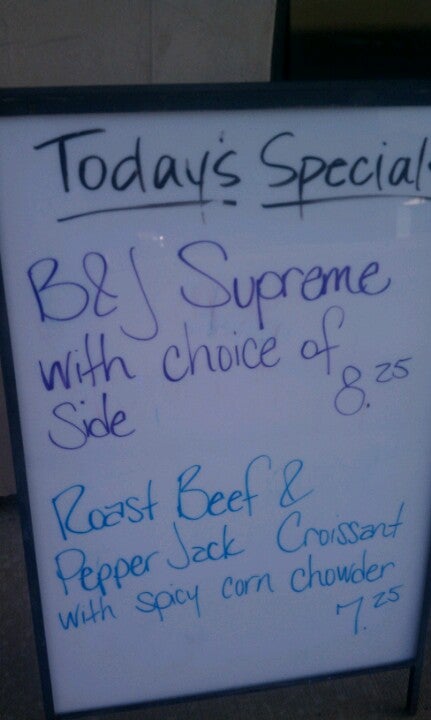 Today's Special
B&J Supreme
with choice of
Side 8.25
Roast Beef &
Pepper Jack Croissant
with spicy corn chowder
7.25